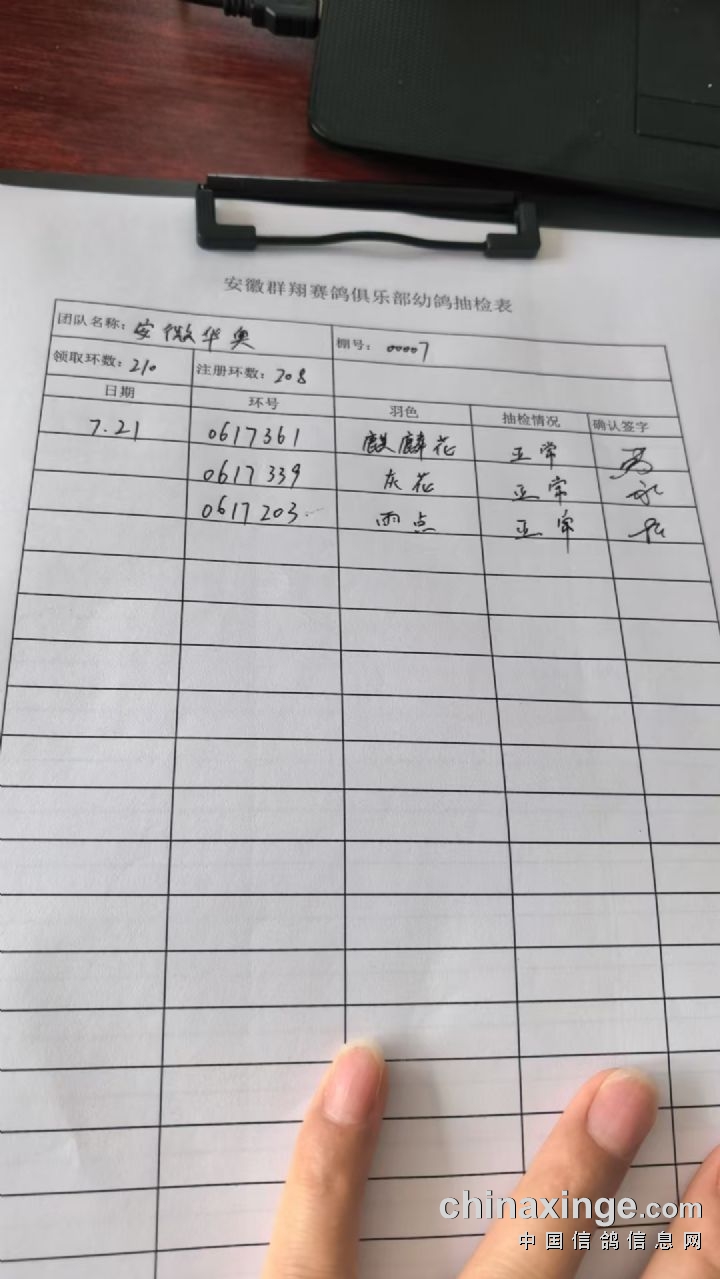 安徽群翔赛鸽俱乐部幼鸽抽检表
团队名称：安徽华奥 棚号：00007
领取环数：210 注册环数：208
日期 环号 羽色 抽检情况 确认签字
7.21 0617361 麒麟花 正常
0617339 灰花 正常
0617203 雨点 正常
chinaxinge.com
中国信鸽信息网